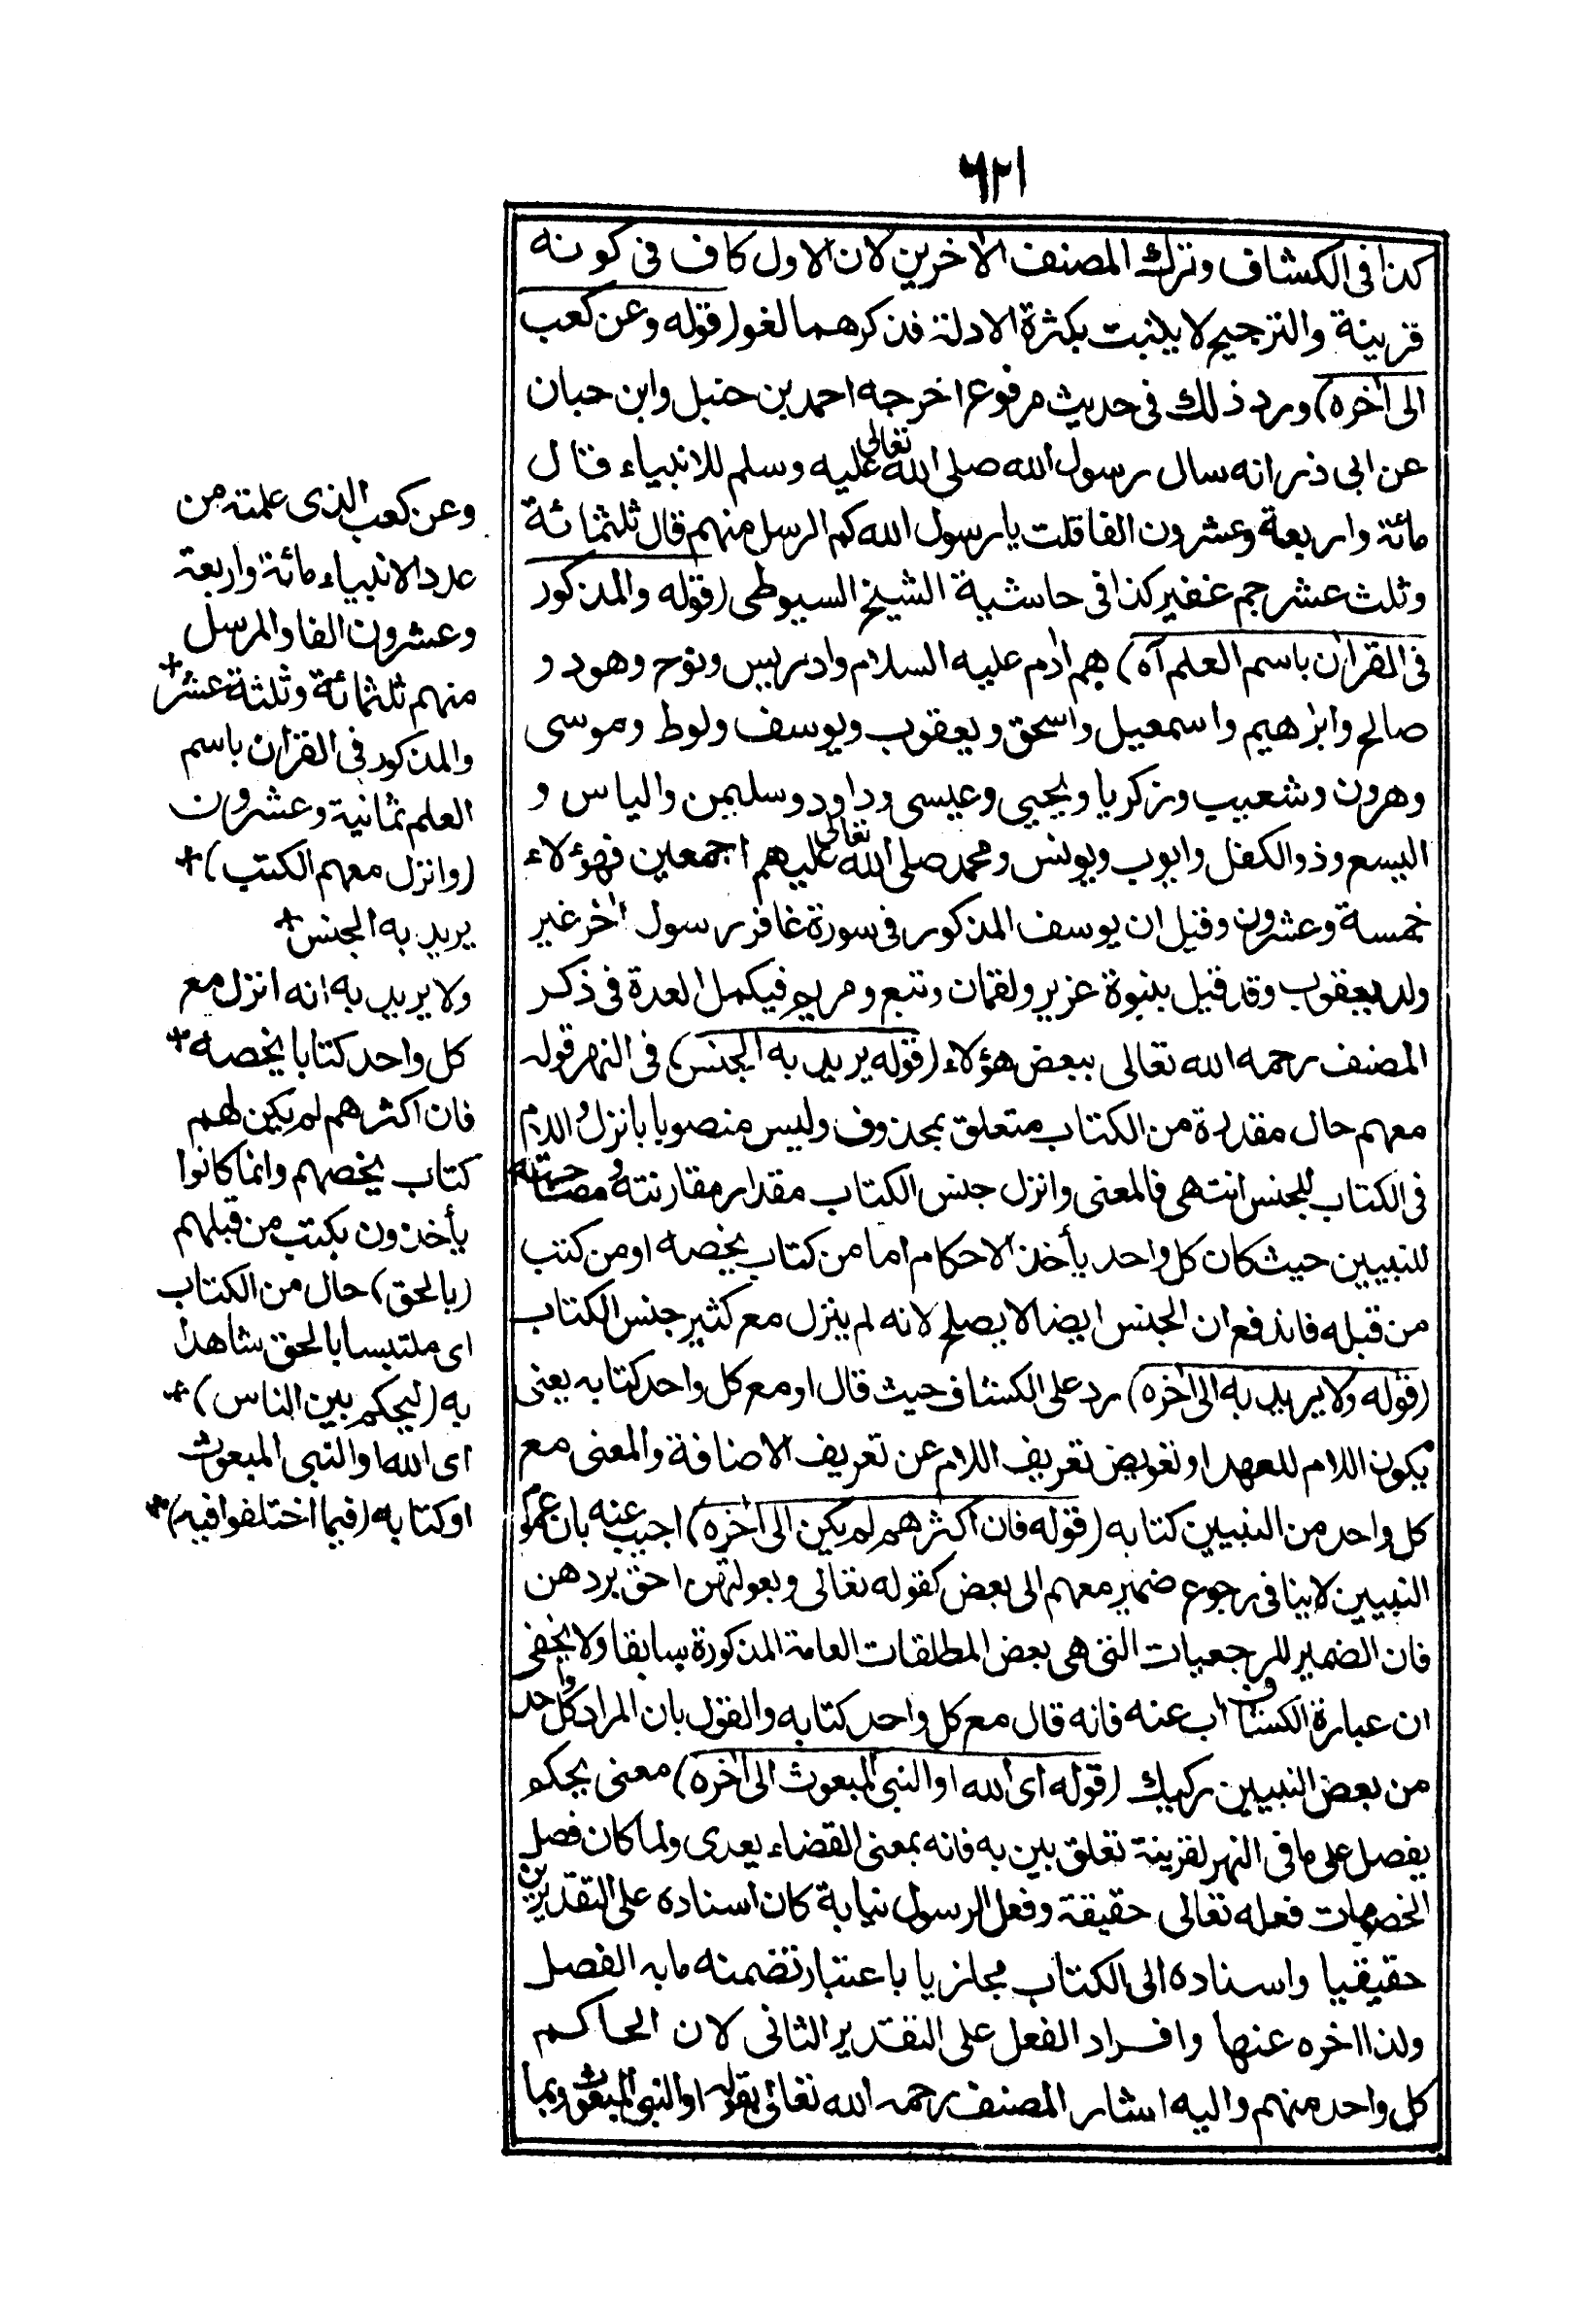 ٦٢١
كذا فى الكشاف وترك المصنف الاخرين لان الاول كاف فى كونه
قرينة والترجيح لا يثبت بكثرة الادلة فذكرهما لغو (قوله وعن كعب
الى اخره) ورد ذلك فى حديث مرفوع اخرجه احمد بن حنبل وابن حبان
عن ابى ذر انه سال رسول الله صلى الله تعالى عليه وسلم للانبياء قال
مائة واربعة وعشرون الفا قلت يا رسول الله كم الرسل منهم قال ثلثمائة
وثلث عشر جم غفير كذا فى حاشية الشيخ السيوطى (قوله والمذكور
فى القران باسم العلم آه) هم ادم عليه السلام وادريس ونوح وهود و
صالح وابرهيم واسمعيل واسحق ويعقوب ويوسف ولوط وموسى
وهرون وشعيب وزكريا ويحيى وعيسى وداود وسليمن والياس و
اليسع وذو الكفل وايوب ويونس ومحمد صلى الله تعالى عليهم اجمعين فهؤلاء
خمسة وعشرون وقيل ان يوسف المذكور فى سورة غافر رسول اخر غير
ولد يعقوب وقد قيل بنبوة عزير ولقمان وتبع ومريم فيكمل العدة فى ذكر
المصنف رحمه الله تعالى ببعض هؤلاء (قوله يريد به الجنس) فى النهر قوله
معهم حال مقدرة من الكتاب متعلق بمحذوف وليس منصوبا بانزل واللام
فى الكتاب للجنس انتهى فالمعنى وانزل جنس الكتاب مقدار مقارنته ومصاحبته
للنبيين حيث كان كل واحد يأخذ الاحكام اما من كتاب يخصه او من كتب
من قبله فاندفع ان الجنس ايضا لا يصلح لانه لم ينزل مع كثير جنس الكتاب
(قوله ولا يريد به الى اخره) رد على الكشاف حيث قال او مع كل واحد كتابه يعنى
يكون اللام للعهد او تعويض تعريف اللام عن تعريف الاضافة والمعنى مع
كل واحد من النبيين كتابه (قوله فان اكثرهم لم يكن الى اخره) اجيب عنه بان عمو
النبيين لا ينافى رجوع ضمير معهم الى بعض كقوله تعالى وبعولتهن احق بردهن
فان الضمير للرجعيات التى هى بعض المطلقات العامة المذكورة سابقا ولا يخفى
ان عبارة الكشاف اب عنه فانه قال مع كل واحد كتابه والقول بان المراد كل واحد
من بعض النبيين ركيك (قوله اى الله او النبى المبعوث الى اخره) معنى يحكم
يفصل على ما فى النهر لقرينة تعلق بين به فانه بمعنى القضاء يعدى ولما كان فصل
الخصومات فعله تعالى حقيقة وفعل الرسول نيابة كان اسناده على التقديرين
حقيقيا واسناده الى الكتاب مجازيا باعتبار تضمنه ما به الفصل
ولذا اخره عنها وافراد الفعل على التقدير الثانى لان الحاكم
كل واحد منهم واليه اشار المصنف رحمه الله تعالى بقوله او النبى المبعوث وبما
وعن كعب الذى علمته من
عدد الانبياء مائة واربعة
وعشرون الفا والمرسل
منهم ثلثمائة وثلثة عشر
والمذكور فى القران باسم
العلم ثمانية وعشرون
(وانزل معهم الكتب)
يريد به الجنس
ولا يريد به انه انزل مع
كل واحد كتابا يخصه
فان اكثرهم لم يكن لهم
كتاب يخصهم وانما كانوا
يأخذون بكتب من قبلهم
(بالحق) حال من الكتاب
اى ملتبسا بالحق شاهدا
به (ليحكم بين الناس)
اى الله او النبى المبعوث
او كتابه (فيما اختلفوا فيه)